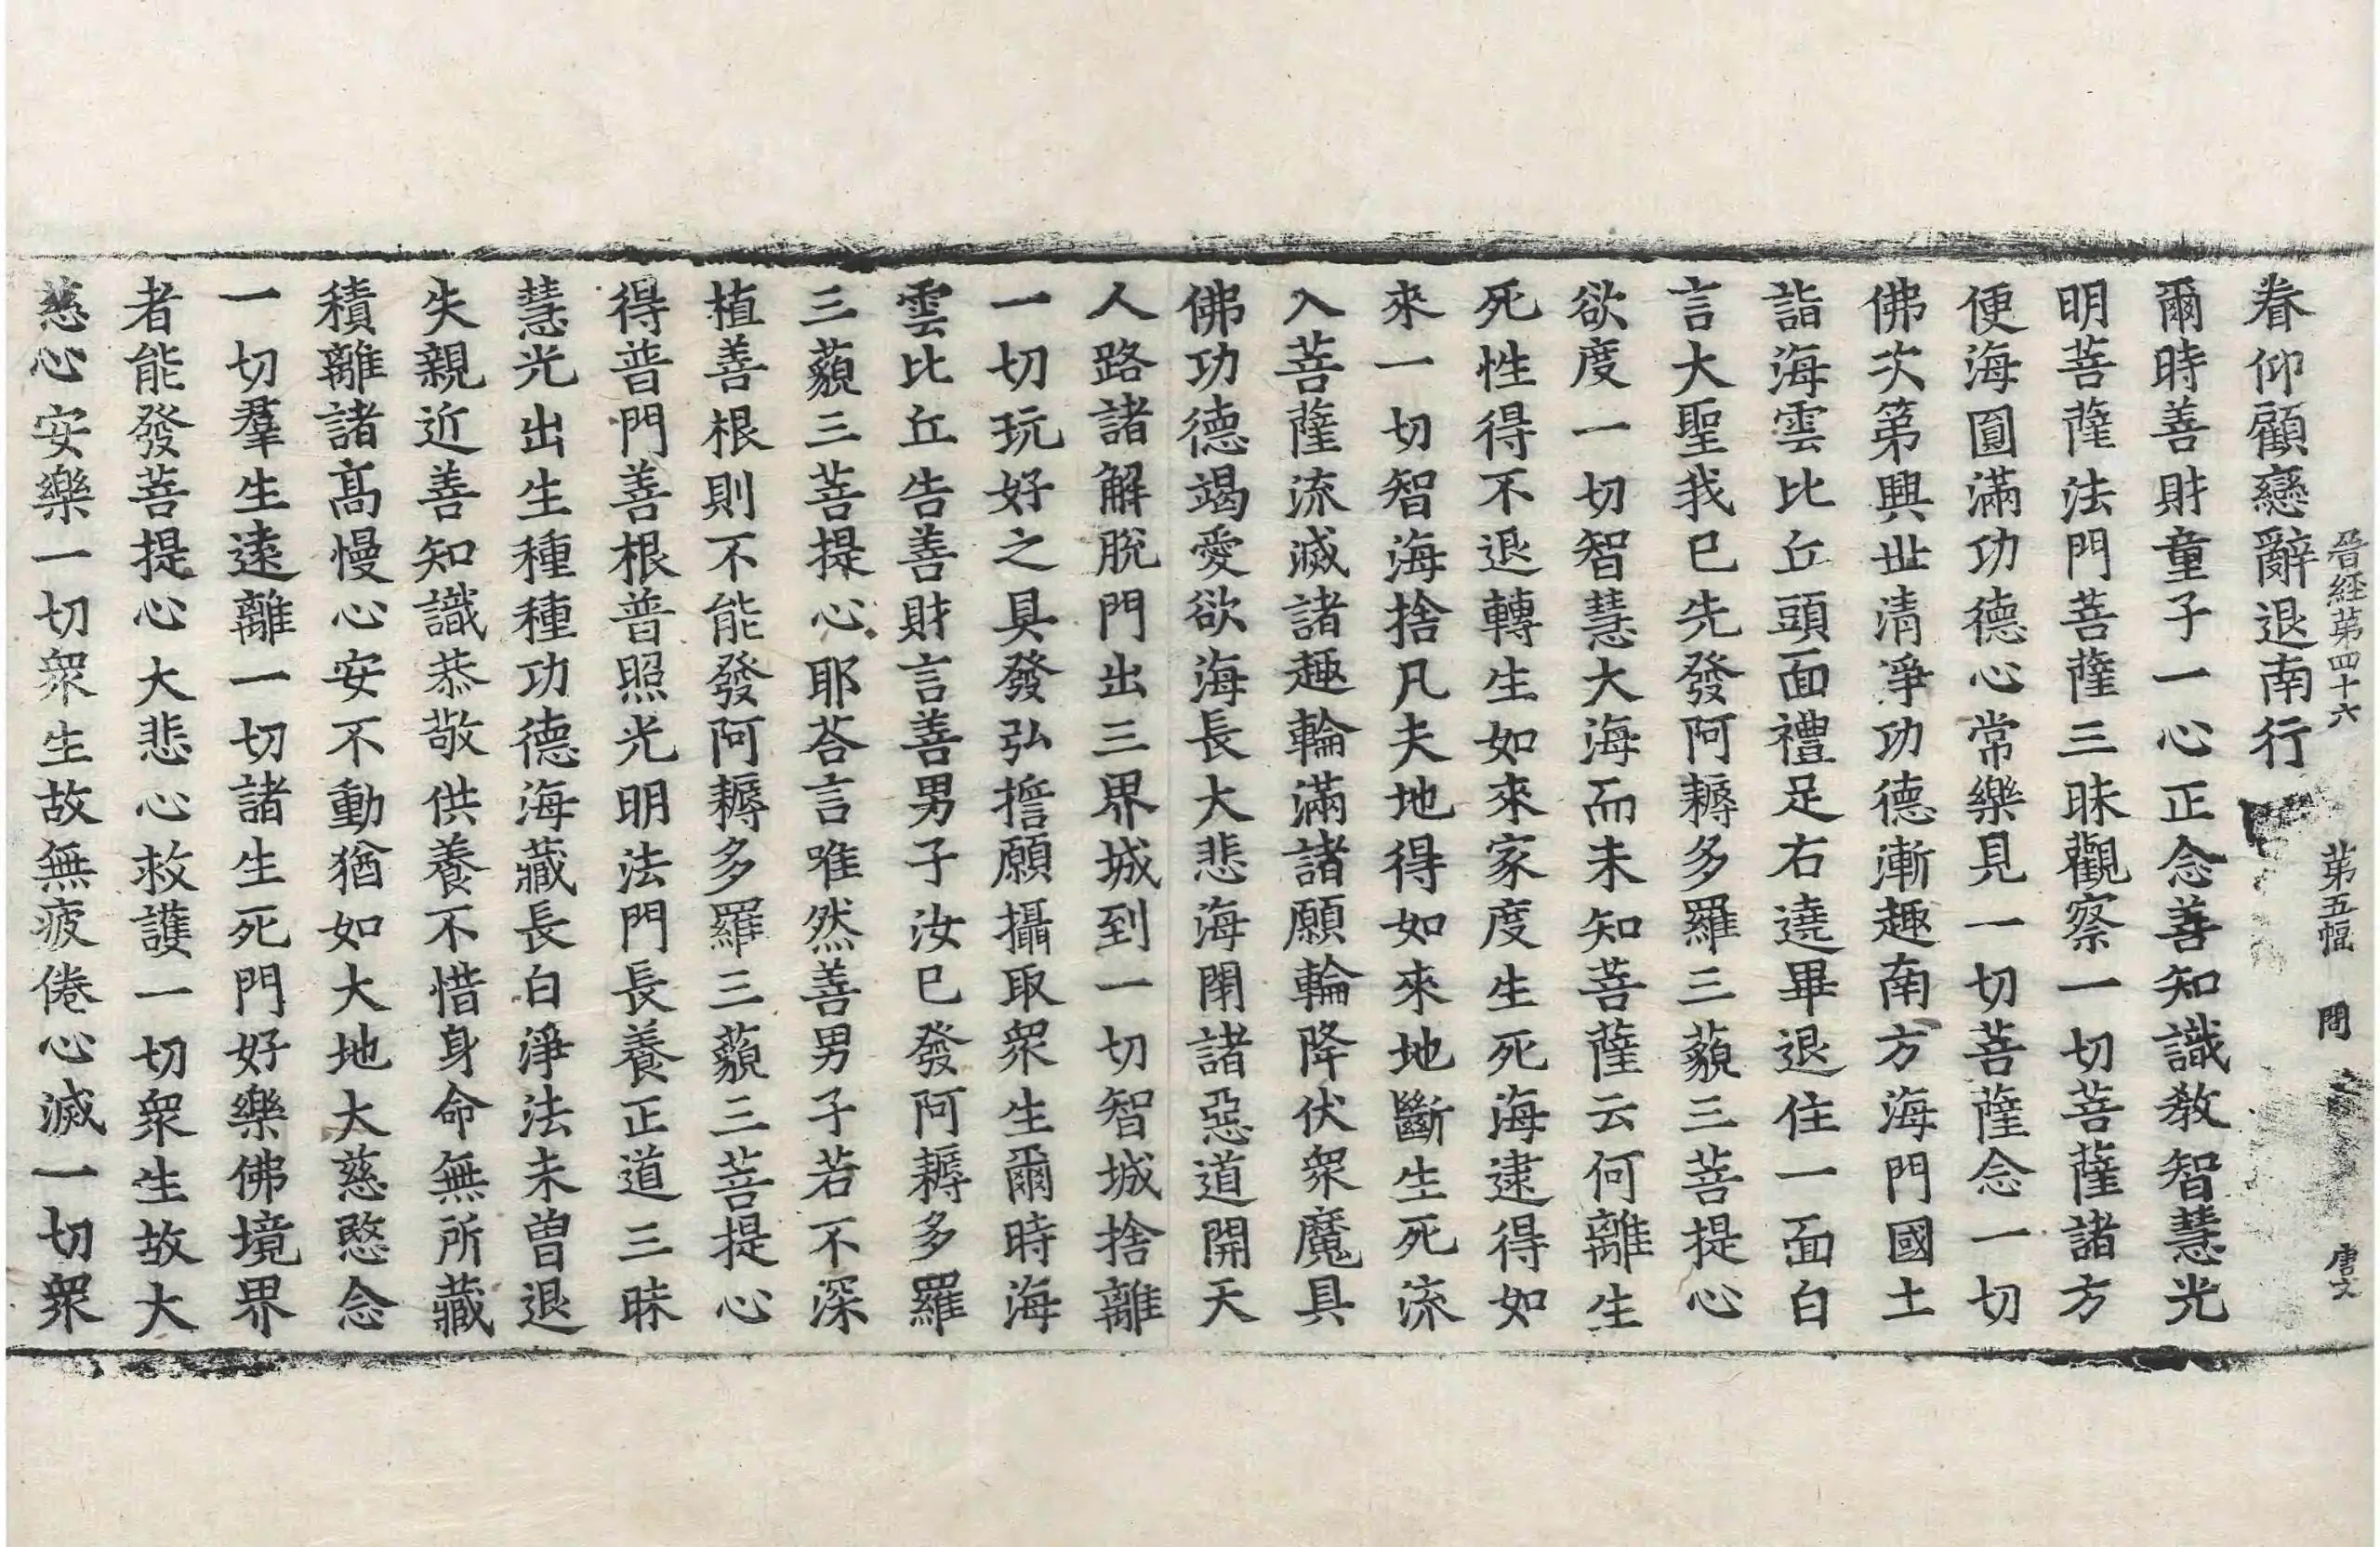 晉經第四十六 第五幅 問 唐文
眷仰顧戀辭退南行
爾時善財童子一心正念善知識教智慧光
明菩薩法門菩薩三昧觀察一切菩薩諸方
便海圓滿功德心常樂見一切菩薩念一切
佛次第興世清淨功德漸趣南方海門國土
詣海雲比丘頭面禮足右遶畢退住一面白
言大聖我已先發阿耨多羅三藐三菩提心
欲度一切智慧大海而未知菩薩云何離生
死性得不退轉生如來家度生死海逮得如
來一切智海捨凡夫地得如來地斷生死流
入菩薩流滅諸趣輪滿諸願輪降伏眾魔具
佛功德竭愛欲海長大悲海閉諸惡道開天
人路諸解脫門出三界城到一切智城捨離
一切玩好之具發弘擔願攝取眾生爾時海
雲比丘告善財言善男子汝已發阿耨多羅
三藐三菩提心耶荅言唯然善男子若不深
植善根則不能發阿耨多羅三藐三菩提心
得普門善根普照光明法門長養正道三昧
慧光出生種種功德海藏長白淨法未曾退
失親近善知識恭敬供養不惜身命無所藏
積離諸高慢心安不動猶如大地大慈愍念
一切羣生遠離一切諸生死門好樂佛境界
者能發菩提心大悲心救護一切眾生故大
慈心安樂一切眾生故無疲倦心滅一切眾